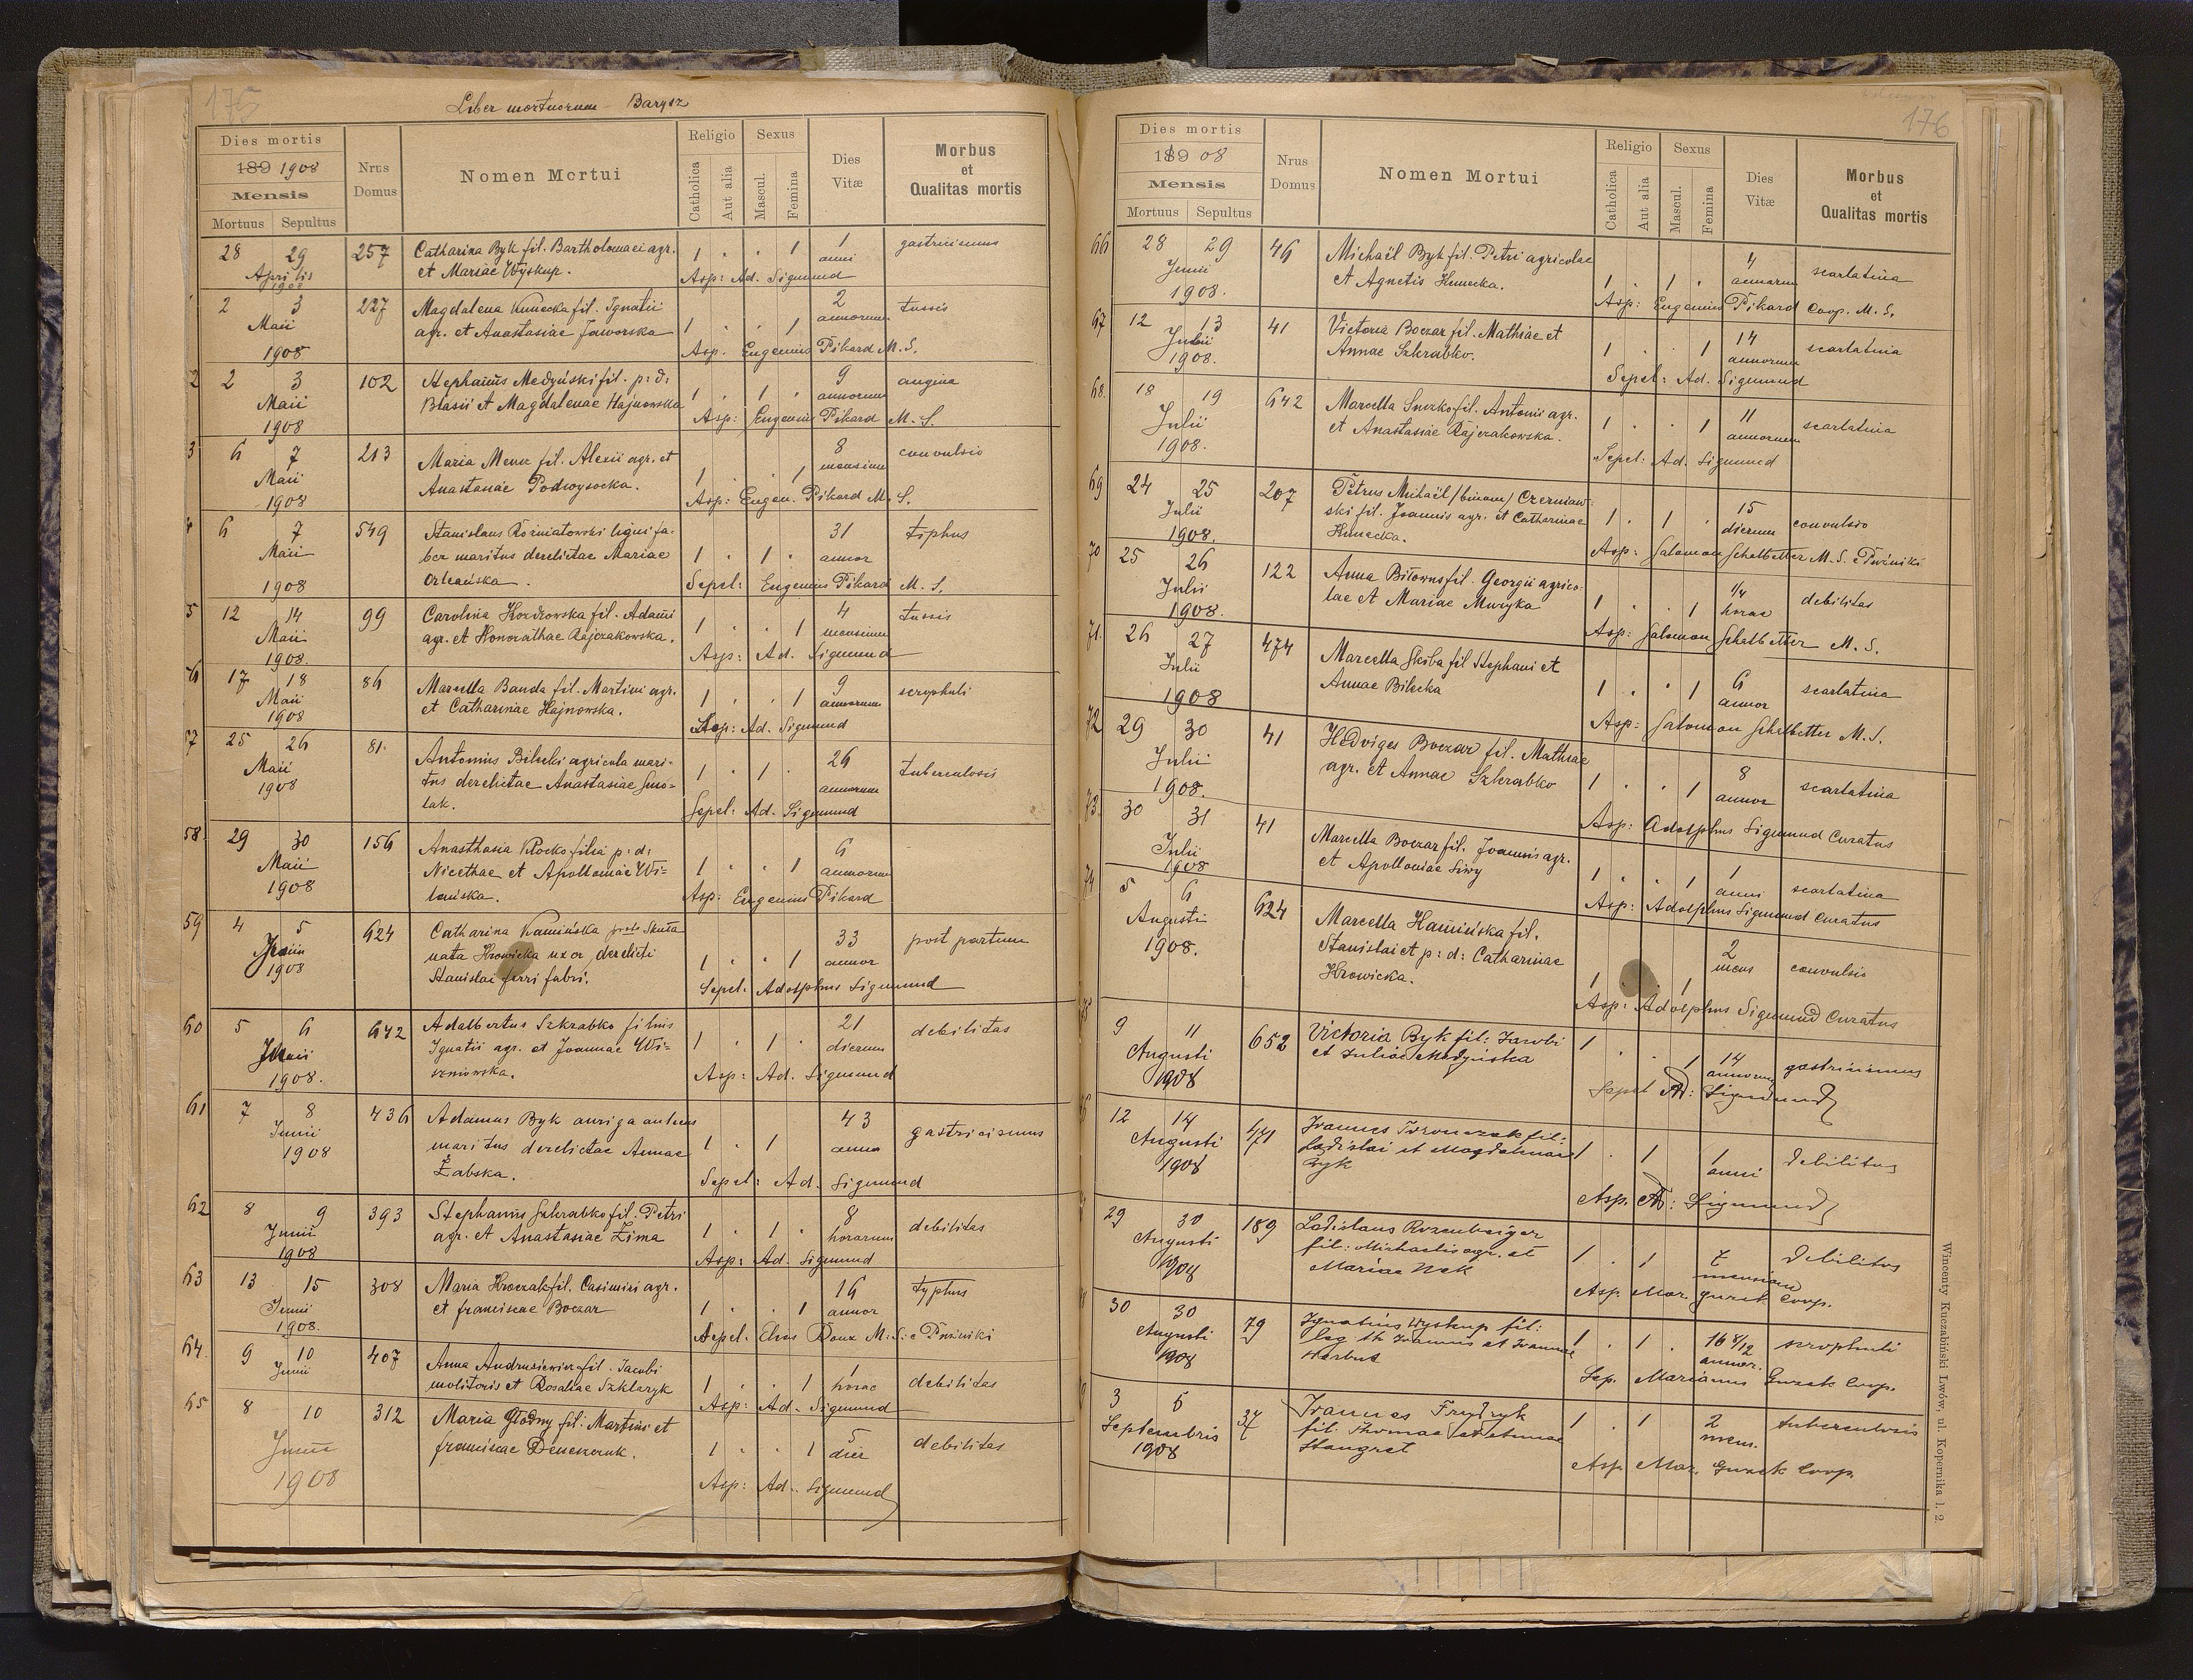 175
Liber mortuorum - Barysz
Dies mortis
189 1908
Mensis
Mortuus Sepultus
Nrus Domus
Nomen Mortui
Religio
Catholica
Aut alia
Sexus
Mascul.
Femina
Dies Vitæ
Morbus
et
Qualitas mortis
28 29 257 Catharina Byk fil. Bartholomaei agr. 1 . . 1 1 gastricismus
Aprilis et Mariae Wyskup. anni
1908 Asp: Ad. Sigmund
2 3 227 Magdalena Kunecka fil. Ignatii 2 tussis
Maii agr. et Anastasiae Jaworska 1 . . 1 annorum
1908 Asp. Eugenius Pikard M. S.
2 2 3 102 Stephanus Medyński fil. p: d: 9 angina
Maii Blasii et Magdalenae Hajnowska 1 . 1 . annorum
1908 Asp: Eugenius Pikard M. S.
3 6 7 213 Maria Menux fil. Alexii agr. et 8 convulsio
Maii Anastasiae Podwysocka. 1 . . 1 mensium
1908 Asp: Eugen. Pikard M. S.
4 6 7 549 Stanislaus Rozmiatowski ligni fa- 31 tiphus
Maii ber maritus derelictae Mariae 1 . 1 . annor
1908 Orleańska. Sepel: Eugenius Pikard M. S.
5 12 14 99 Carolina Kozdrowska fil. Adami 4 tussis
Maii agr. et Honorathae Rajczakowska. 1 . . 1 mensium
1908. Asp: Ad. Sigmund
6 17 18 86 Marcella Banda fil. Martini agr. 1 . . 1 9 scrophuli
Maii et Catharinae Hajnowska. annorum
1908 Asp: Ad. Sigmund
57 25 26 81. Antonius Bilecki agricola mari- 26 tuberculosis
Maii tus derelictae Anastasiae Smo= 1 . 1 . annorum
1908 lak. Sepel: Ad. Sigmund
58 29 30 156 Anasthasia Klocko filia p: d: 6
Maii Nicethae et Apolloniae Wi= 1 . . 1 annorum
1908 lańska. Asp: Eugenius Pikard
59 4 5 624 Catharina Kamińska Skuta 33 post partum
Junii nata Krowicka uxor derelicti 1 . . 1 annor
1908 Stanislai ferri fabri. Sepel. Adolphus Sigmund
60 5 6 642 Adalbertus Szkrabko filius 21 debilitas
Junii Ignatii agr. et Joannae Wi= 1 . 1 . dierum
1908. szniowska. Asp: Ad. Sigmund
61 7 8 436 Adamus Byk auriga 43 gastricismus
Junii maritus derelictae Annae 1 . 1 anno
1908 Żabska. Sepel: Ad. Sigmund
62 8 9 393 Stephanus Szkrabko fil. Petri 8 debilitas
Junii agr. et Anastasiae Zima 1 . 1 . horarum
1908 Asp: Ad. Sigmund
63 13 15 308 Maria Kroczak fil. Casimiri agr. 16 typhus
Junii et franciscae Boczar 1 . . 1 annor
1908. Sepel. Elias Doux M: S: e Puźniki
64. 9 10 407 Anna Andrusiewicz fil. Jacobi 1 debilitas
Junii molitoris et Rosaliae Szklaryk 1 . . 1 horae
Asp: Ad. Sigmund
65 8 10 312 Maria Głodny fil: Martini et 5 debilitas
Junii franciscae Deneszczuk. 1 . . 1 dier
1908 Asp: Ad. Sigmund
176
Dies mortis
189 08
Mensis
Mortuus Sepultus
Nrus Domus
Nomen Mortui
Religio
Catholica
Aut alia
Sexus
Mascul.
Femina
Dies Vitæ
Morbus
et
Qualitas mortis
66 28 29 46 Michaël Byk fil. Petri agricolae 4 scarlatina
Junii et Agnetis Kunecka. 1 . 1 . annorum
1908. Asp: Eugenius Pikard Coop. M. S.
67 12 13 41 Victoria Boczar fil. Mathiae et 14 scarlatina
Julii Annae Szkrabko. 1 . . 1 annorum
1908. Sepel: Ad. Sigmund
68. 18 19 642 Marcella Snczko fil. Antonii agr. 11 scarlatina
Julii et Anastasiae Rajczakowska. 1 . . 1 annorum
1908. Sepel: Ad. Sigmund
69 24 25 207 Petrus Michaël /binom/ Czerniaw- 15 convulsio
Julii ski fil. Joannis agr. et Catharinae 1 . 1 . dierum
1908. Kunecka. Asp: Salomon Schelbetter M. S. e Puźniki
70 25 26 122 Anna Biłowus fil. Georgii agrico- 1/4 debilitas
Julii lae et Mariae Muzyka 1 . . 1 horae
1908. Asp: Salomon Schelbetter M. S.
71. 26 27 474 Marcella Skiba fil Stephani et 6 scarlatina
Julii Annae Bilecka 1 . . 1 annor
1908 Asp: Salomon Schelbetter M. S.
72 29 30 41 Hedviges Boczar fil. Mathiae 8 scarlatina
Julii agr. et Annae Szkrabko 1 . . 1 annor
1908. Asp: Adolphus Sigmund Curatus
73. 30 31 41 Marcella Boczar fil. Joannis agr. 1 scarlatina
Julii et Apolloniae Siwy 1 . . 1 anni
1908 Asp: Adolphus Sigmund Curatus
74 5 6 624 Marcella Kamińska fil. 2 convulsio
Augusti Stanislai et p: d: Catharinae 1 . 1 mens
1908. Krowicka. Asp: Adolphus Sigmund Curatus
9 11 652 Victoria Byk fil: Jacobi 1 . . 1 14 gastricismus
Augusti et Juliae Medyńska annorum
1908 Sepel Ad: Sigmund
12 14 471 Joannes fil: 1 . 1 1 debilitas
Augusti Ladislai et Magdalenae anni
1908 Byk Asp. Ad: Sigmund
29 30 189 Ladislaus Rozenbeiger 7 debilitas
Augusti fil: Michaelis agr. et 1 . 1 mensium
1908 Mariae Asp. Mar. Guzek Coop.
30 30 79 Ignatius Wyskup fil: 1 . 1 . 16 8/12 scrophuli
Augusti leg. th Joannis et Joannae annor.
1908 Sep. Marianus Guzek Coop.
3 5 37 Joannes Frydryk 1 . 1 2 tuberculosis
Septembris fil. Thomae et Annae mens.
1908 Stangret Asp. Mar. Guzek Coop.
Wincenty Kuczabiński Lwów, ul. Kopernika l. 2.